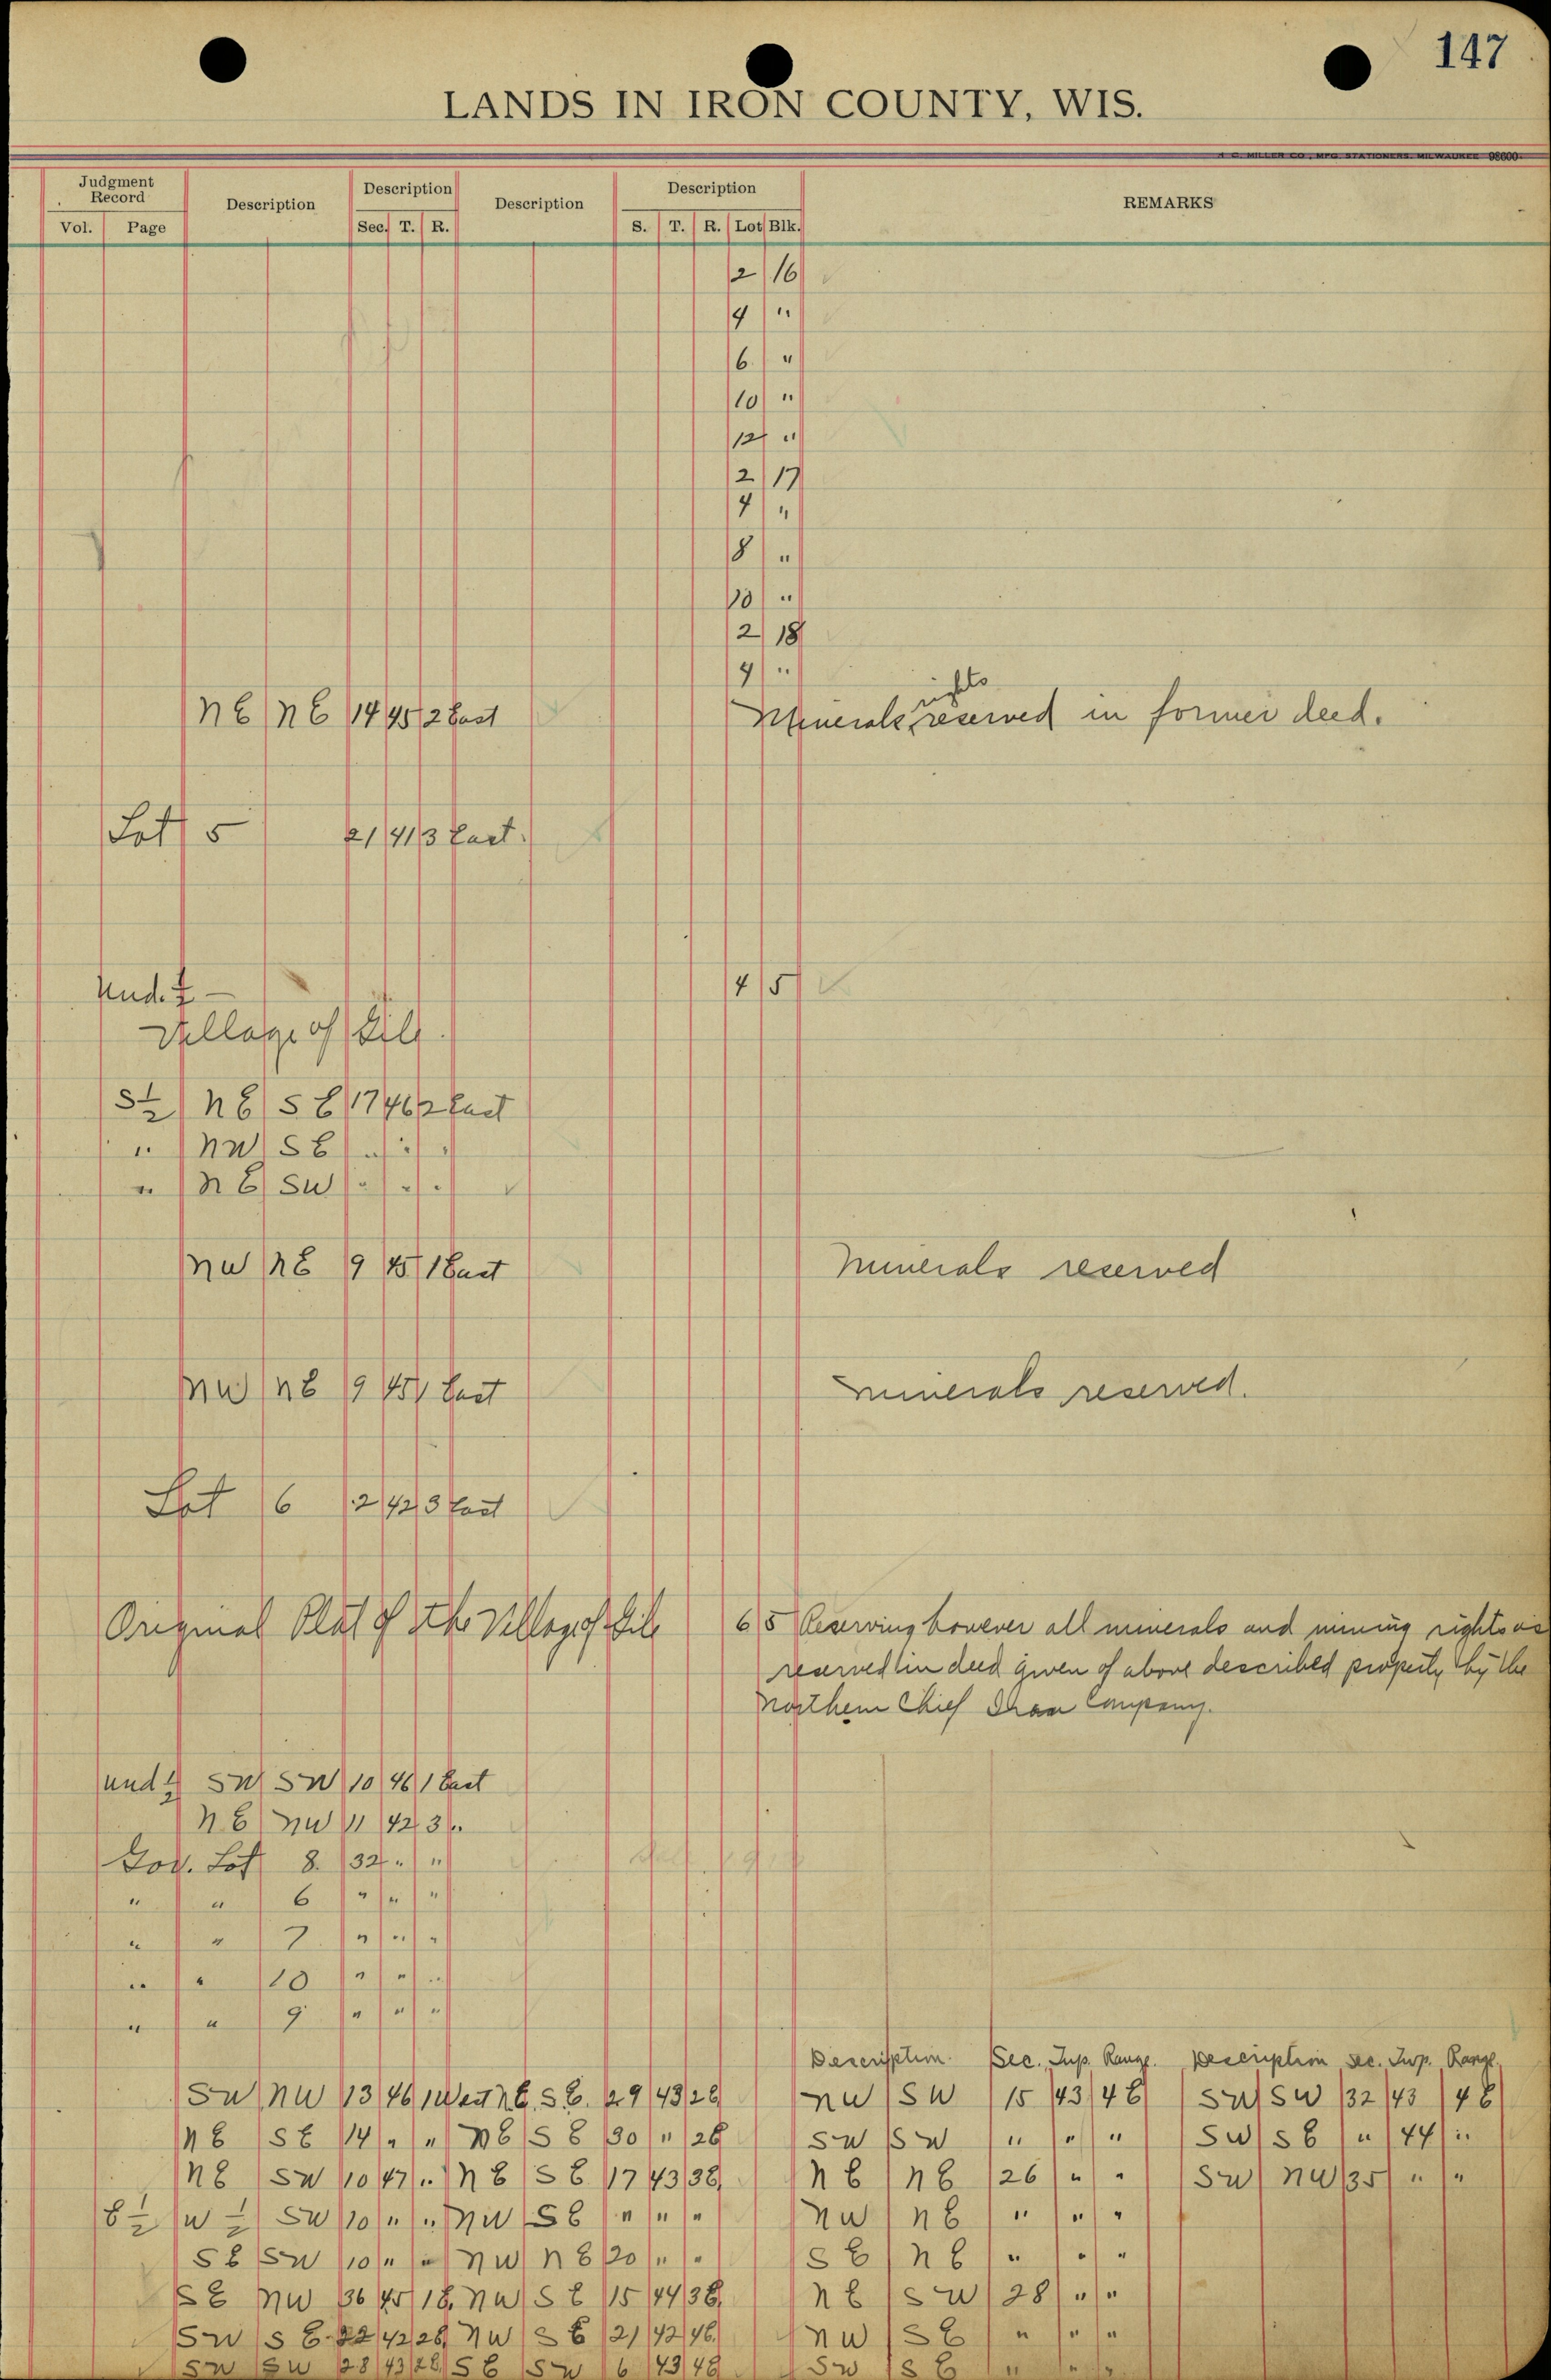 147
LANDS IN IRON COUNTY, WIS.
H. C. MILLER CO., MFG. STATIONERS, MILWAUKEE 98600
Judgment Record Description Description Description Description REMARKS
Vol. Page Sec. T. R. S. T. R. Lot Blk.
2 16
4 "
6 "
10 "
12 "
2 17
4 "
8 "
10 "
2 18
4 "
rights
NE NE 14 45 2 East Minerals reserved in former deed.
Lot 5 21 41 3 East.
Und. 4 5
Village of Gile
S 1/2 NE SE 17 46 2 East
" NW SE " " "
" NE SW " " "
NW NE 9 45 1 East Minerals reserved
NW NE 9 45 1 East minerals reserved.
Lot 6 2 42 3 East
Original Plat of the Village of Gile 6 5 Reserving however all minerals and mining rights as
reserved in deed given of above described property by the
Northern Chief Iron Company.
und SW SW 10 46 1 East
NE NW 11 42 3 "
Gov. Lot 8. 32 " "
" " 6 " " "
" " 7 " " "
" " 10 " " "
" " 9 " " "
Description. Sec. Twp. Range. Description Sec. Twp. Range.
SW NW 13 46 1 West NE SE 29 43 2E NW SW 15 43 4E SW SW 32 43 4E
NE SE 14 " " NE SE 30 " 2E SW SW " " " SW SE " 44 "
NE SW 10 47 " NE SE 17 43 3E NE NE 26 " " SW NW 35 " "
E 1/2 W 1/2 SW 10 " " NW SE " " " NW NE " " "
SE SW 10 " " NW NE 20 " " SE NE " " "
SE NW 36 45 1E NW SE 15 44 3E NE SW 28 " "
SW SE 22 42 2E NW SE 21 42 4E NW SE " " "
SW SW 28 43 2E SE SW 6 43 4E SW SE " " "